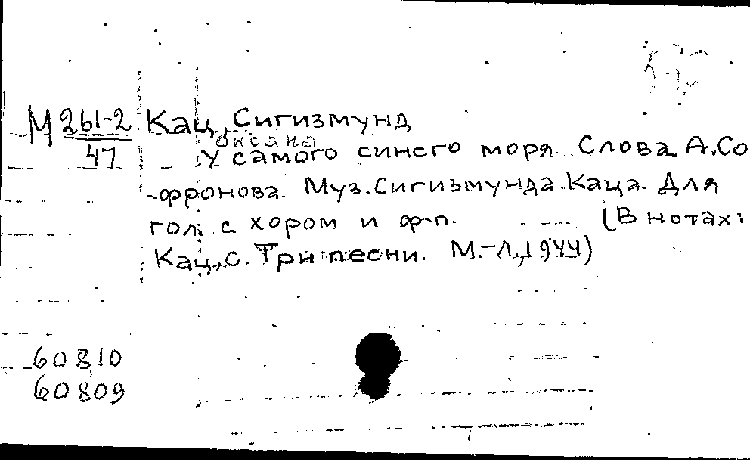 М 261-2 Кац, Сигизмунд
47 Оксана
У самого синего моря. Слова А. Со
-фронова. Муз. Сигизмунда Каца. Для
гол. с хором и ф-п. (В нотах:
Кац, С. Три песни. М.-Л., 1944)
60810
60809